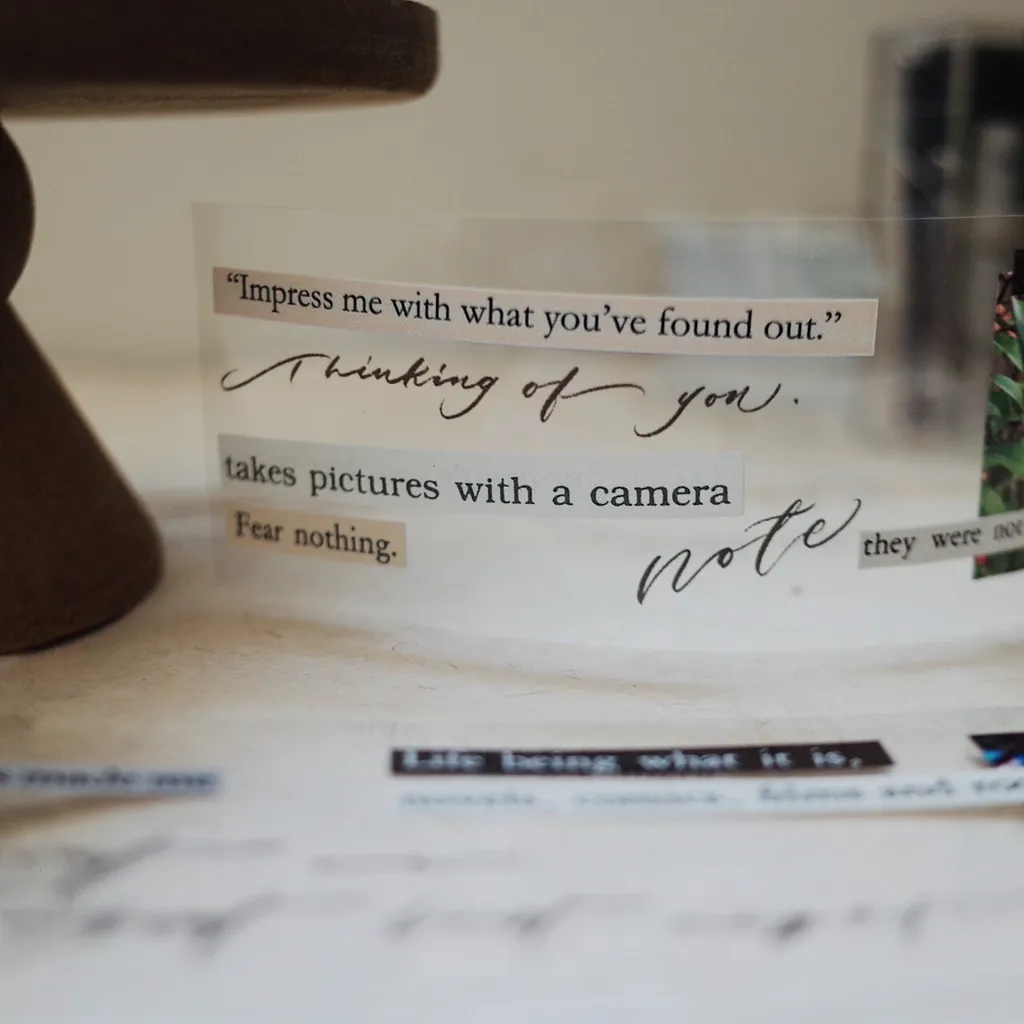 “Impress me with what you’ve found out.”
Thinking of you.
takes pictures with a camera
Fear nothing.
note
they were not
Life being what it is,